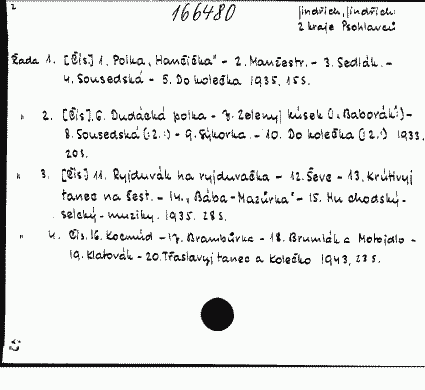 2
166480
Jindřich, Jindřich:
z kraje Psohlavců
Řada 1. [Čís] 1. Polka „Hančička" - 2. Mančestr. - 3. Sedlák. -
4. Sousedská - 5. Do kolečka 1935. 15 s.
" 2. [Čís]. 6. Dudácká polka - 7. Zelenyj kúsek (:„Baborák":) -
8. Sousedská (:2.:) - 9. Sýkorka. - 10. Do kolečka (:2.:) 1933.
20 s.
" 3. [Čís] 11. Ryjduvák na ryjduvačka - 12.Ševc - 13. Krútivyj
tanec na šest. - 14. „Bába - Mazúrka" - 15. Hu chodský-
selcký - muziky. 1935. 28 s.
" 4. Čís. 16. Kocmúd - 17. Brambůrka - 18. Brumlák a Motojdlo -
19. Klatovák - 20. Třaslavyj tanec a Kolečko 1943, 23 s.